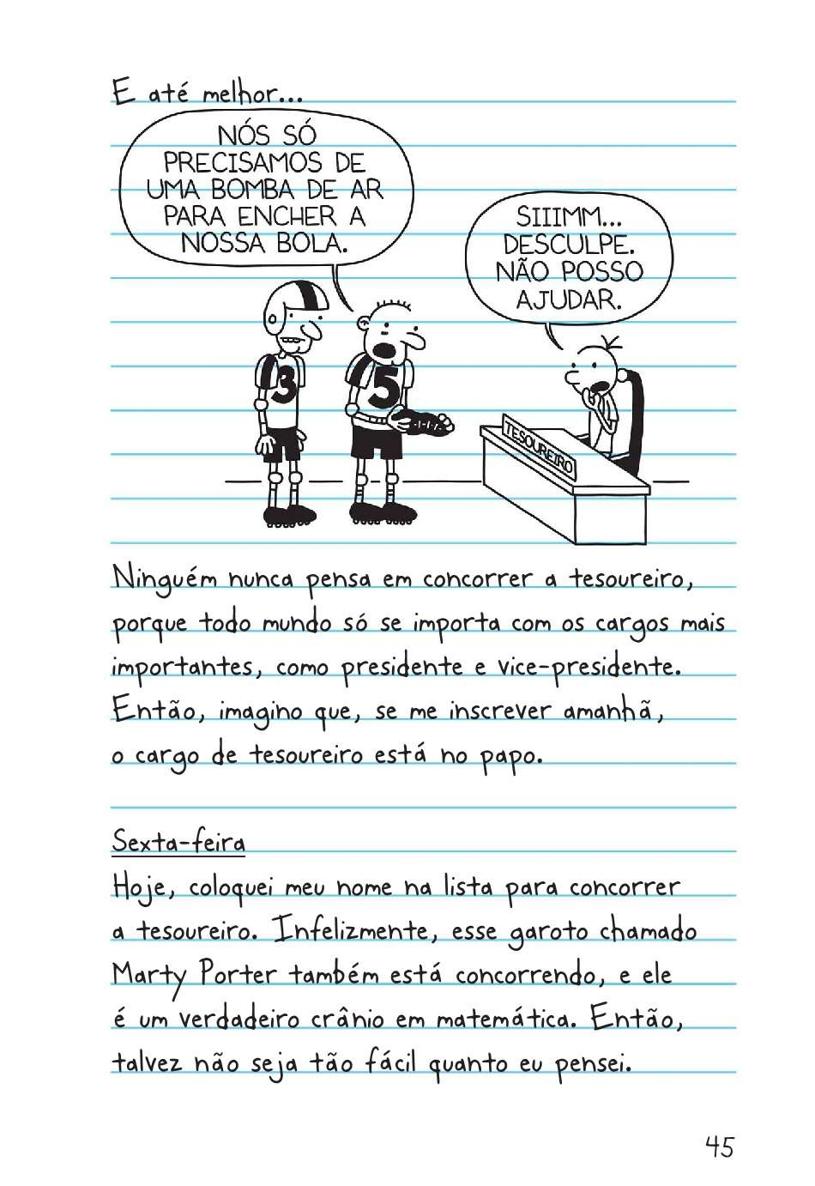 E até melhor...
NÓS SÓ
PRECISAMOS DE
UMA BOMBA DE AR
PARA ENCHER A
NOSSA BOLA.
SIIIMM...
DESCULPE.
NÃO POSSO
AJUDAR.
3
5
TESOUREIRO
Ninguém nunca pensa em concorrer a tesoureiro,
porque todo mundo só se importa com os cargos mais
importantes, como presidente e vice-presidente.
Então, imagino que, se me inscrever amanhã,
o cargo de tesoureiro está no papo.
Sexta-feira
Hoje, coloquei meu nome na lista para concorrer
a tesoureiro. Infelizmente, esse garoto chamado
Marty Porter também está concorrendo, e ele
é um verdadeiro crânio em matemática. Então,
talvez não seja tão fácil quanto eu pensei.
45